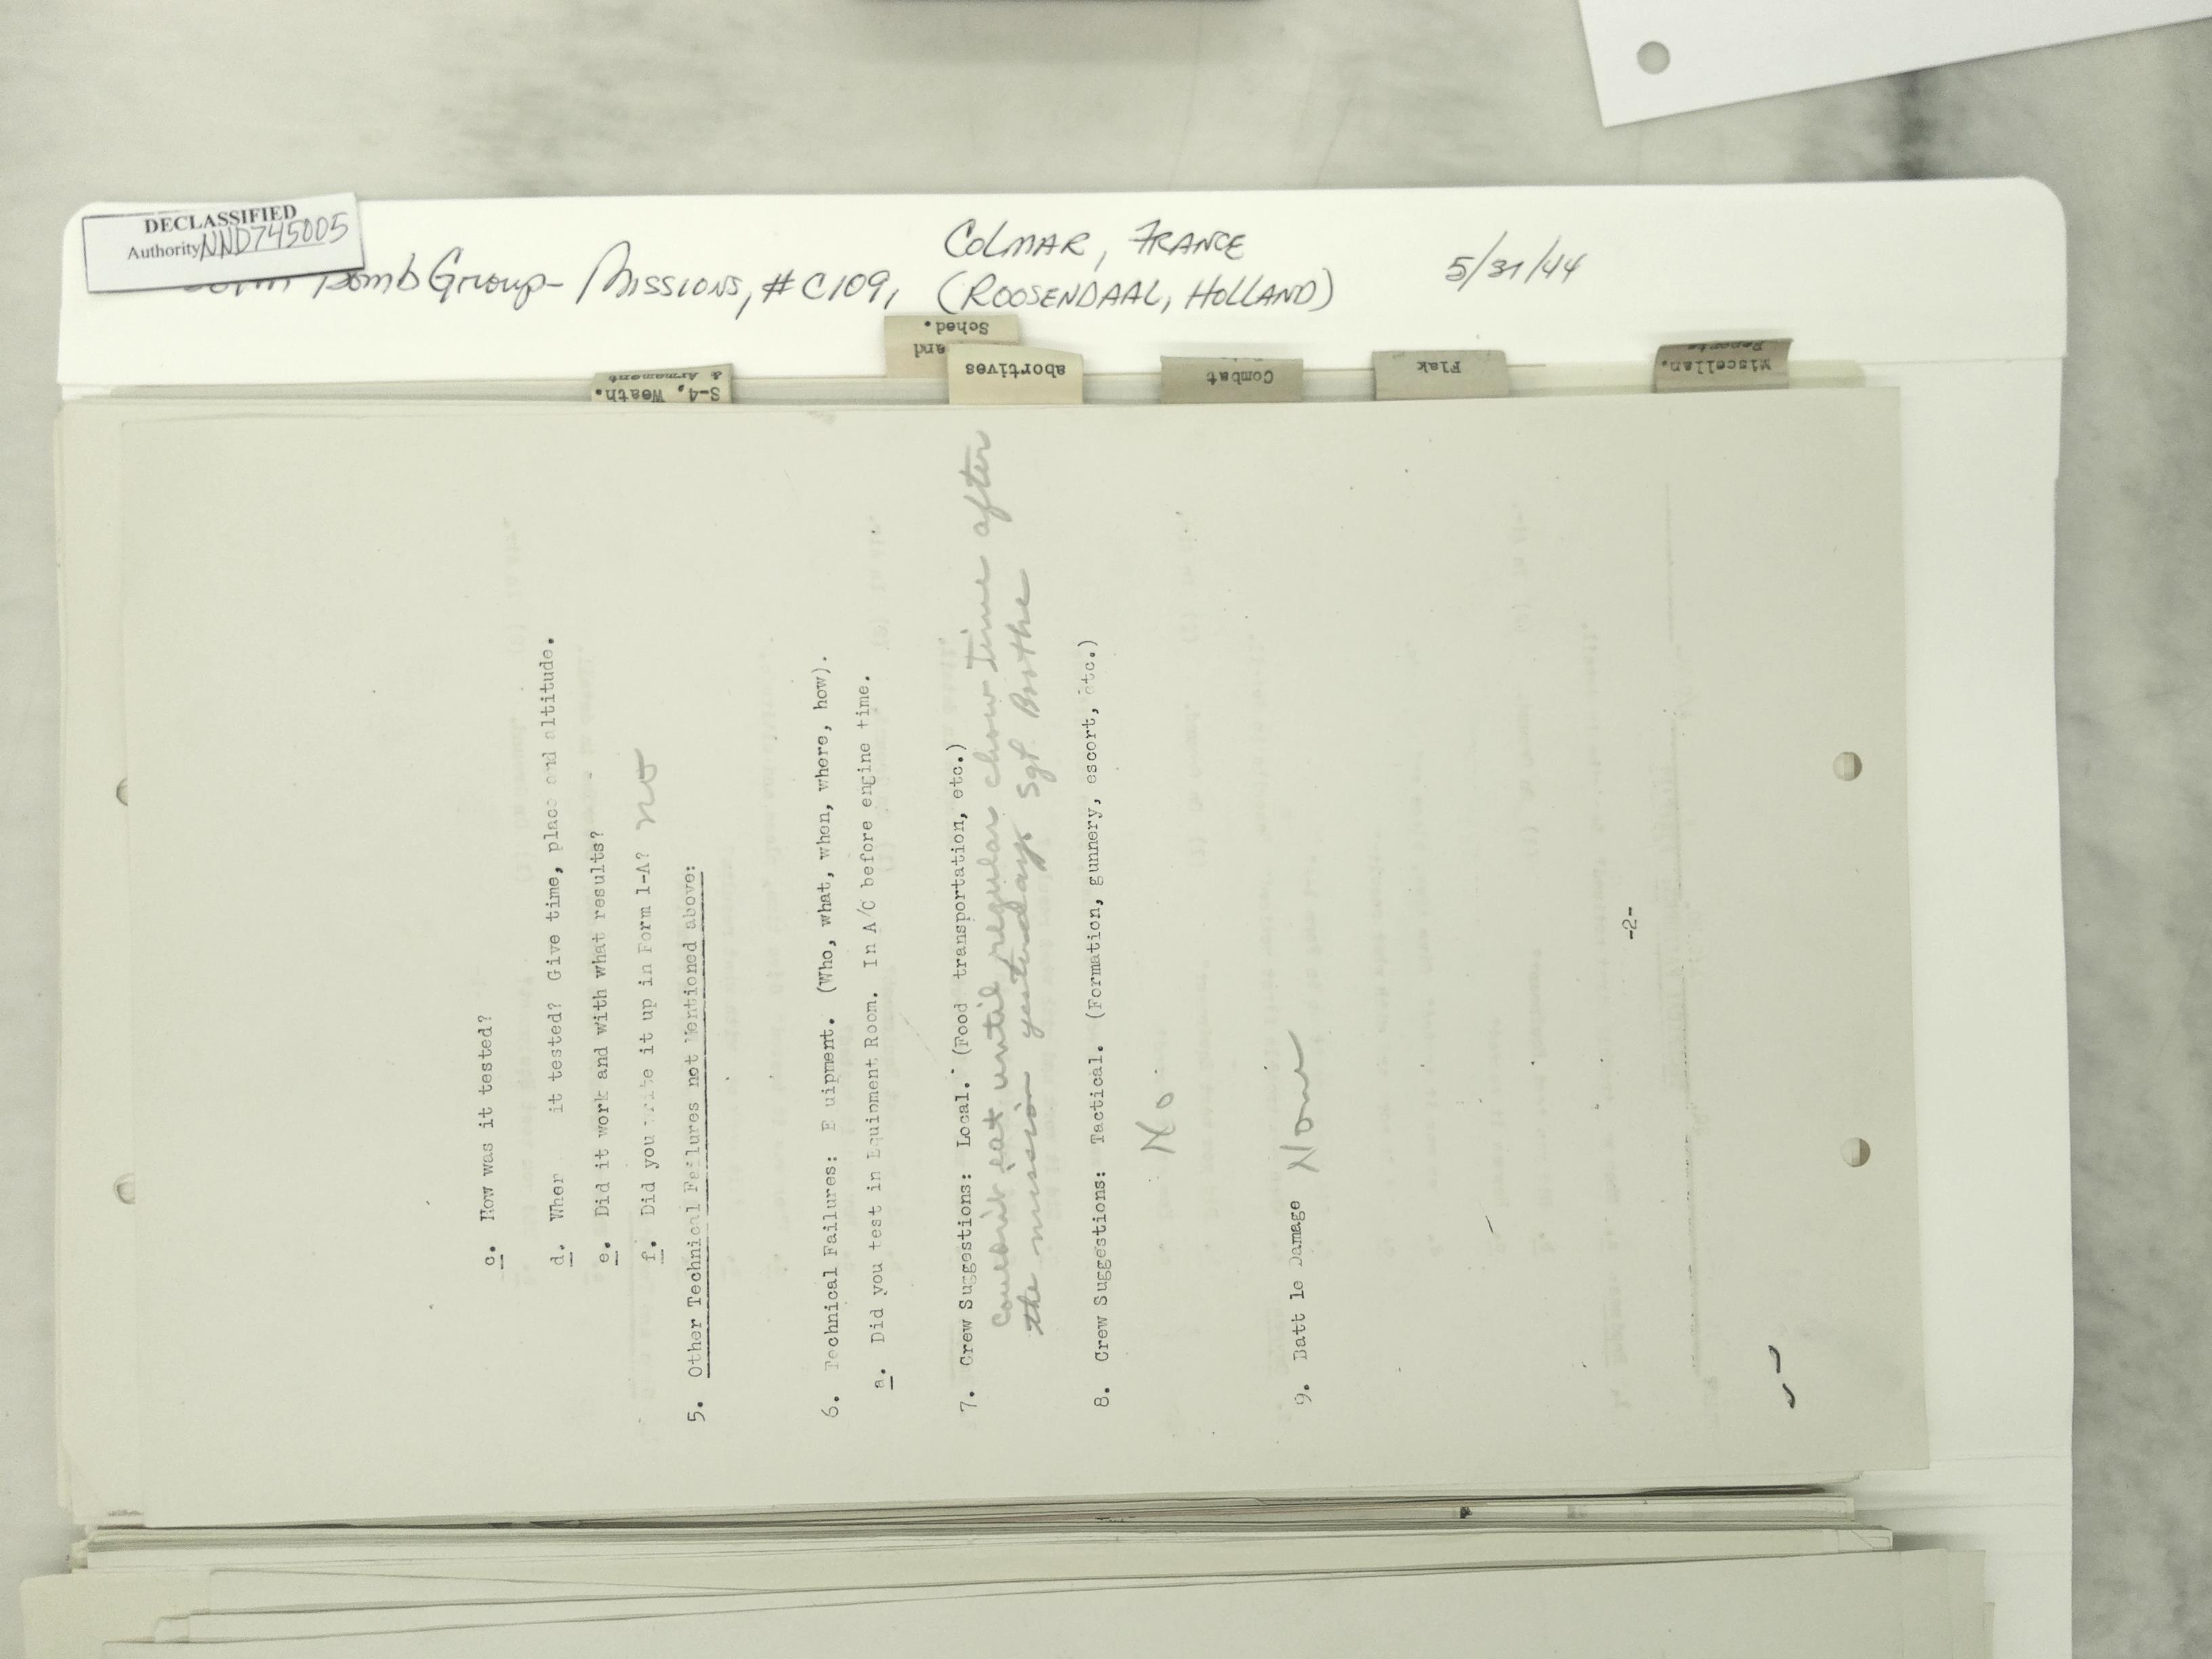 DECLASSIFIED
Authority NND745005
Bomb Group- Missions, #C109, COLMAR, FRANCE 5/31/44
(ROOSENDAAL, HOLLAND)
S-4, Weath.
& Armament
and
Sched.
abortives
Combat
Flak
Miscellan.
Reports
c. How was it tested?
d. When it tested? Give time, place and altitude.
e. Did it work and with what results?
f. Did you write it up in Form 1-A? no
5. Other Technical Failures not Mentioned above:
6. Technical Failures: E uipment. (Who, what, when, where, how).
a. Did you test in Equipment Room. In A/C before engine time.
7. Crew Suggestions: Local. (Food transportation, etc.)
Couldn't eat until regular chow time after
the mission yesterday. Sgt Boothe
8. Crew Suggestions: Tactical. (Formation, gunnery, escort, etc.)
No
9. Batt le Damage None
-2-